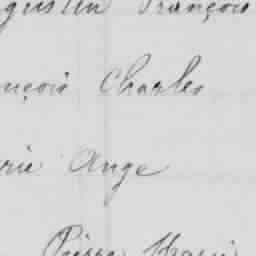 gustin François
nçois Charles
rie Ange
Pierre Marie